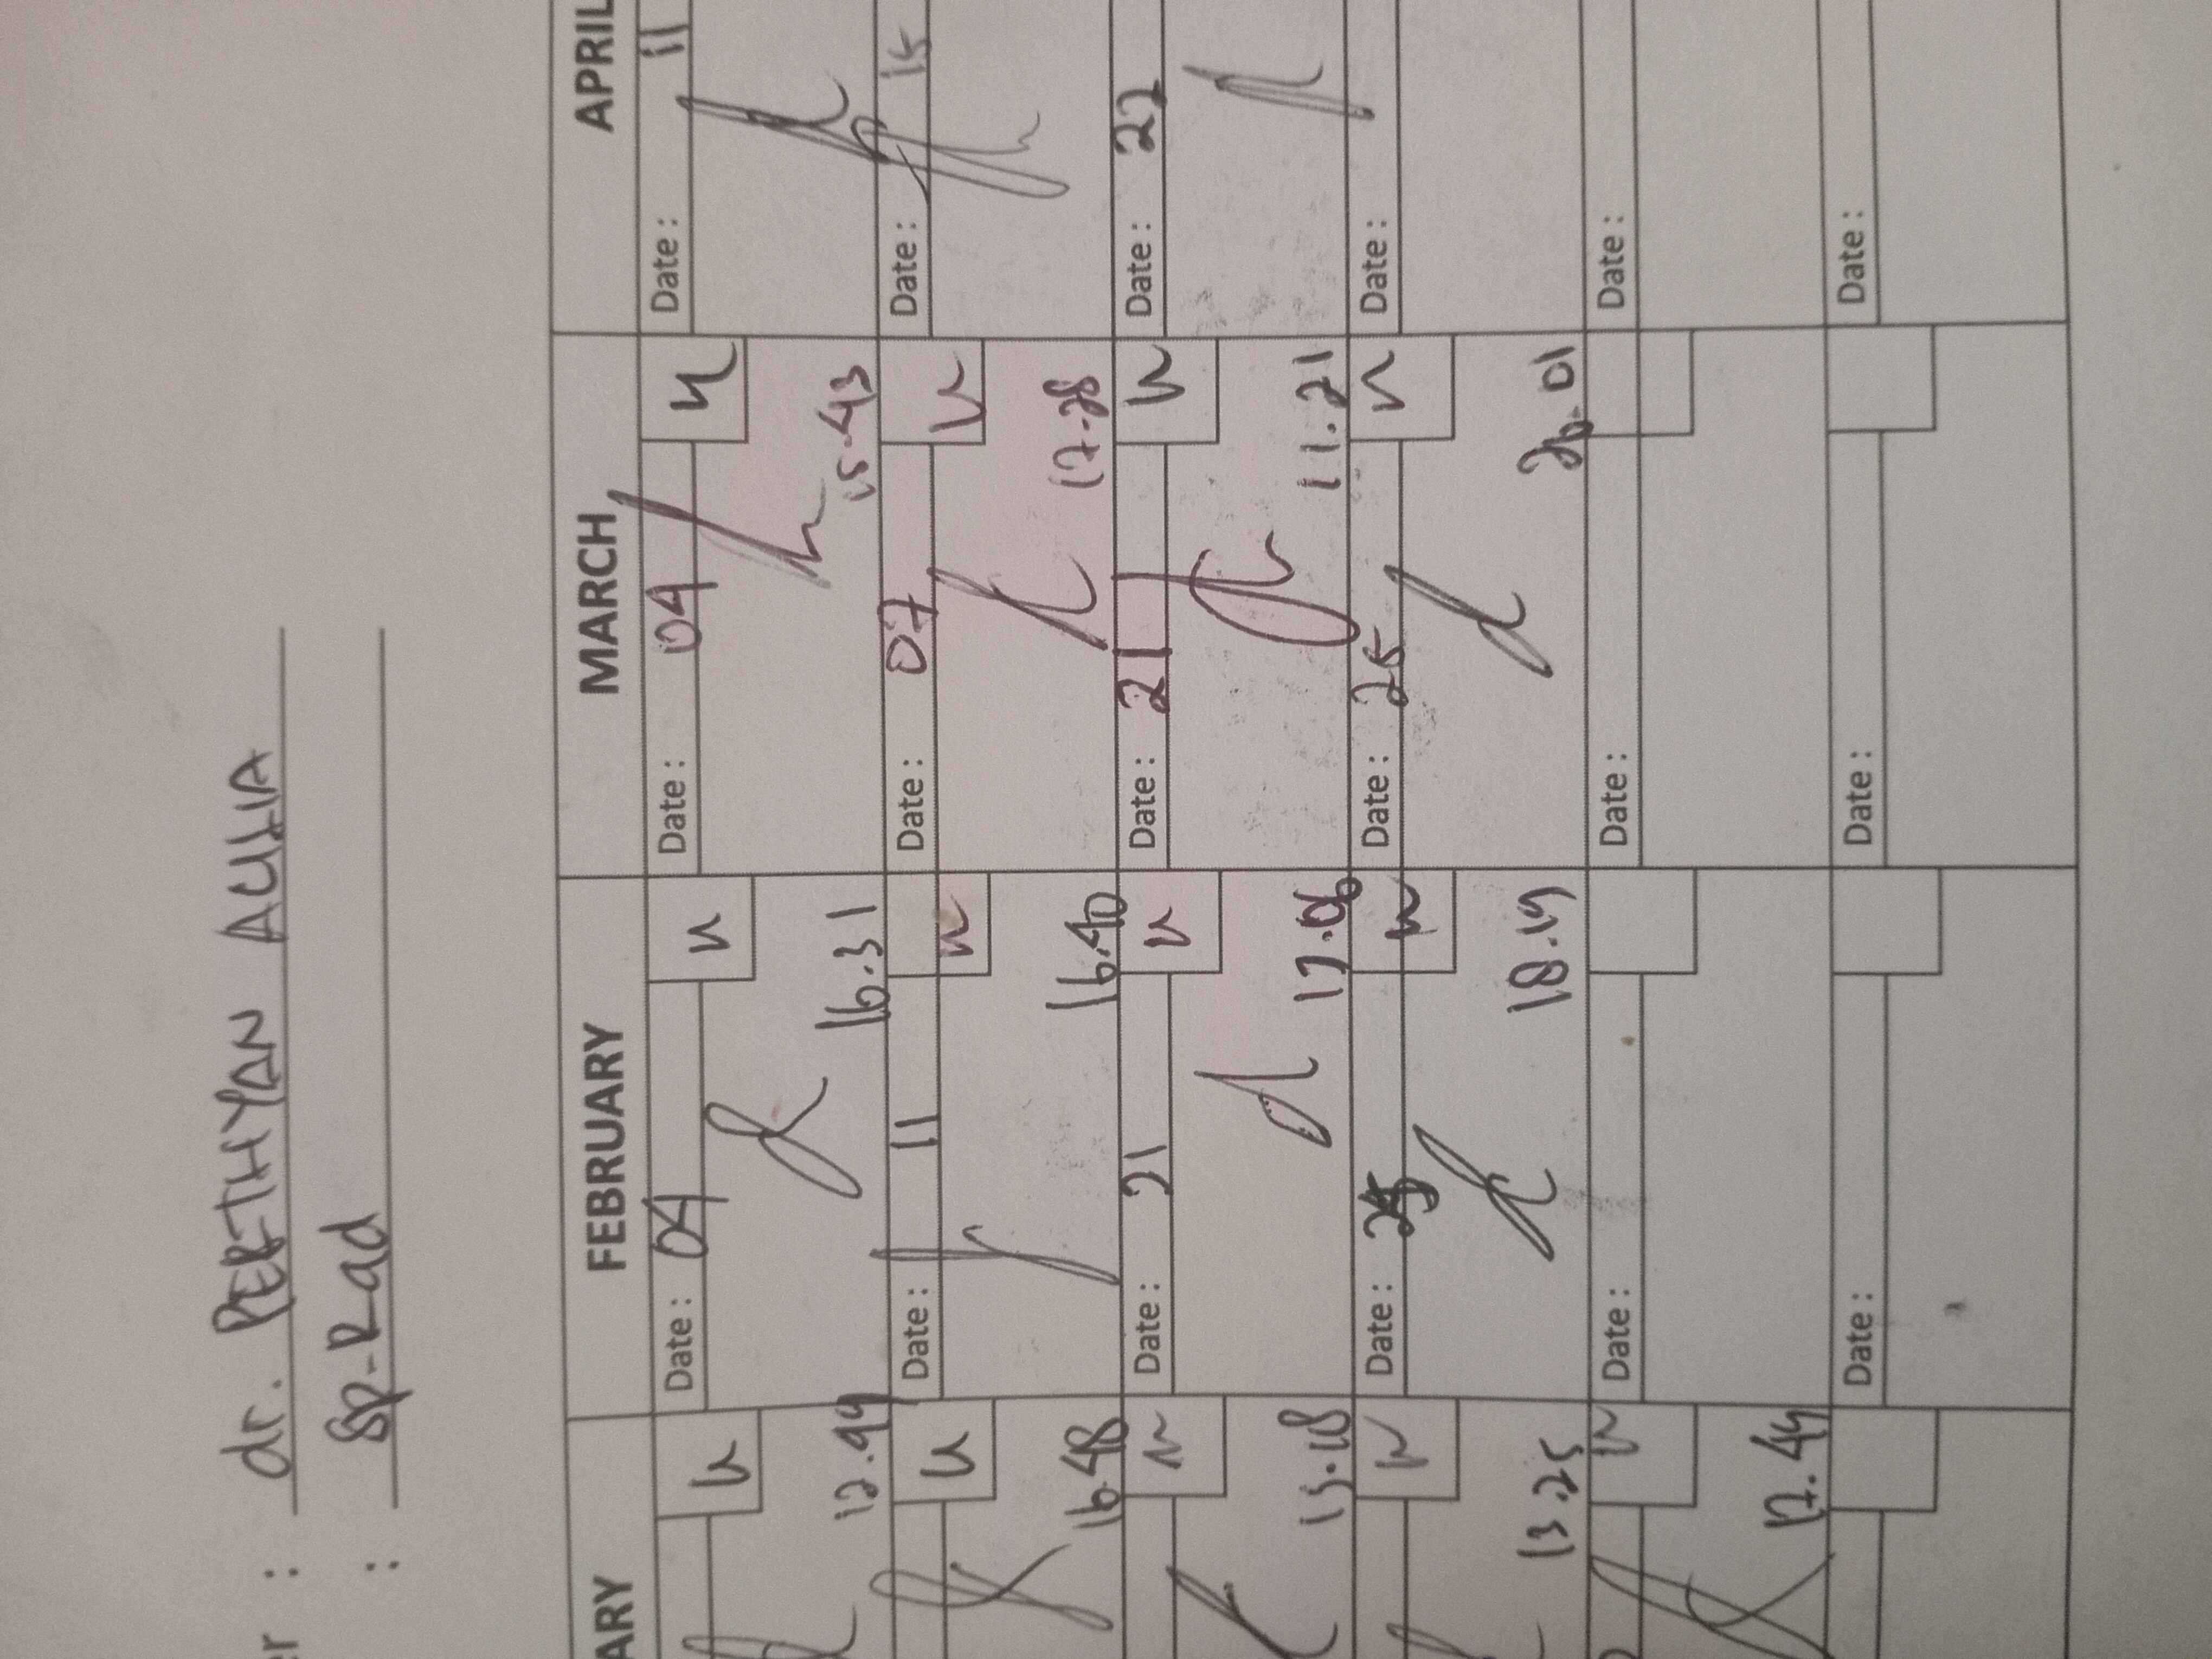 er : dr. PERTHYAN AULIA
: SP-Rad
ARY FEBRUARY MARCH APRIL
Date: 04 Date: 04 Date: 11
12.49 16.31 15-43
Date: 11 Date: 07 Date: 15
16.48 16.40 17-28
Date: 21 Date: 21 Date: 22
17.06 11.21
Date: 25 Date: 25 Date:
13.25 18.19 20.01
Date: Date: Date:
17.44
Date: Date: Date: